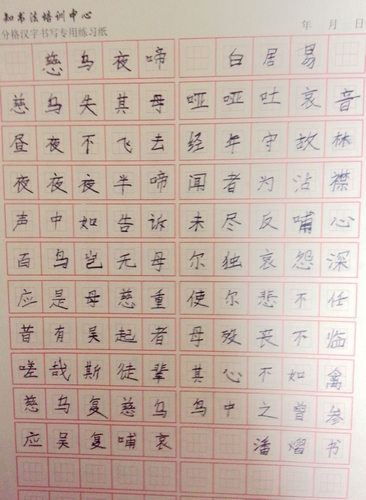 知书法培训中心
分格汉字书写专用练习纸 年 月 日
慈乌夜啼 白居易
慈乌失其母 哑哑吐哀音
昼夜不飞去 经年守故林
夜夜夜半啼 闻者为沾襟
声中如告诉 未尽反哺心
百鸟岂无母 尔独哀怨深
应是母慈重 使尔悲不任
昔有吴起者 母殁丧不临
嗟哉斯徒辈 其心不如禽
慈乌复慈乌 鸟中之曾参
应吴复哺哀 潘熠书